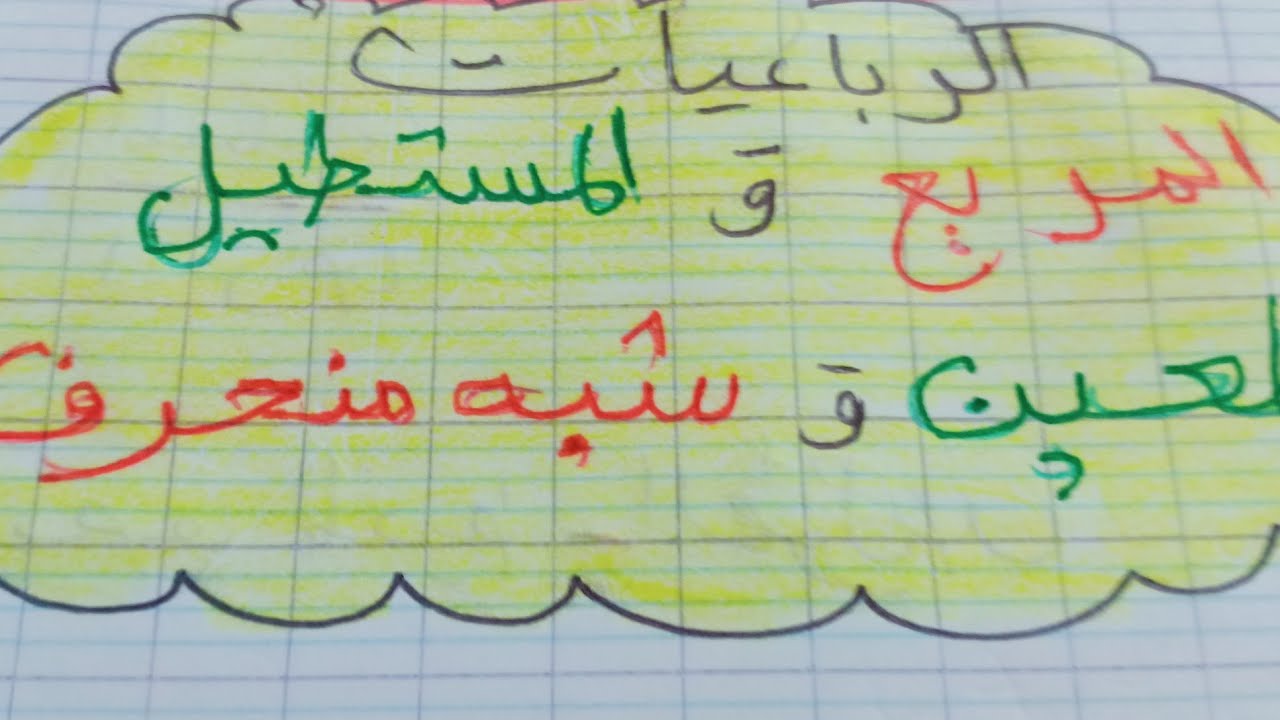 الرباعيات
المربع و المستطيل
لمعين و شبه منحرف